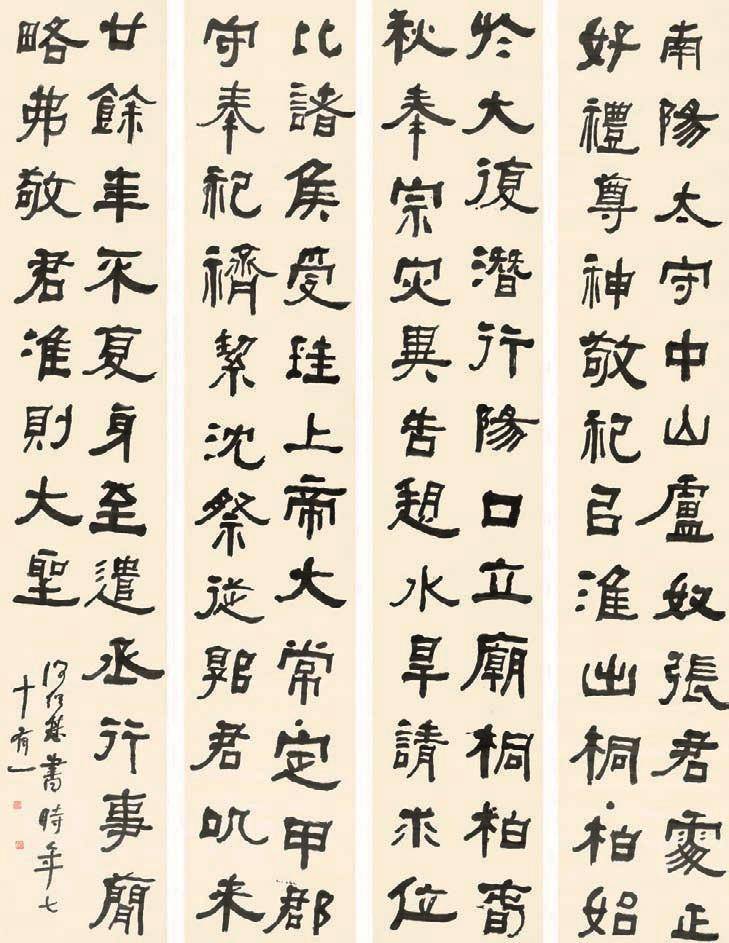 南陽太守中山盧奴張君處正
好禮尊神敬祀以淮出桐柏始
於大復潛行陽口立廟桐柏春
秋奉宗災異告愬水旱請求位
比諸侯受珪上帝大常定甲郡
守奉祀𧞓絜沈祭從郭君以來
廿餘年不夏身至遣丞行事簡
略弗敬君准則大聖
書時年七
十有一